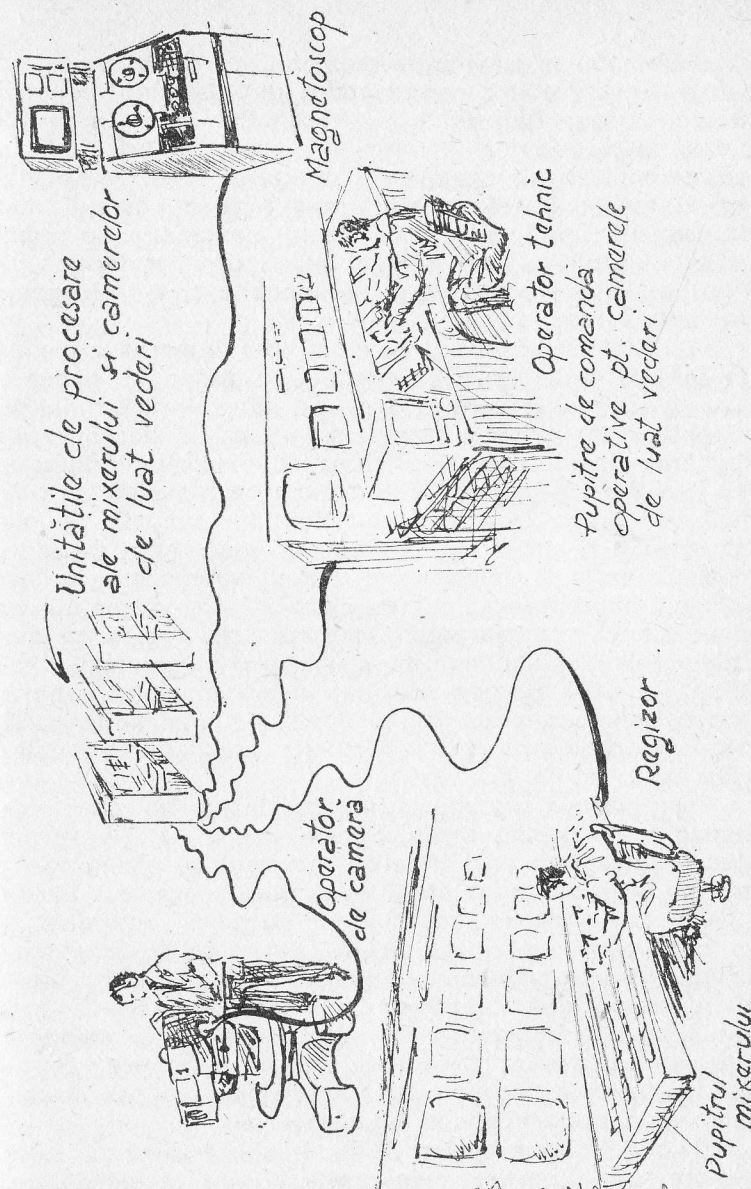 Unitățile de procesare
ale mixerului și camerelor
de luat vederi
Magnetoscop
Operator tehnic
Pupitre de comanda
operative pt. camerele
de luat vederi
Operator
de cameră
Regizor
Pupitrul
mixerului